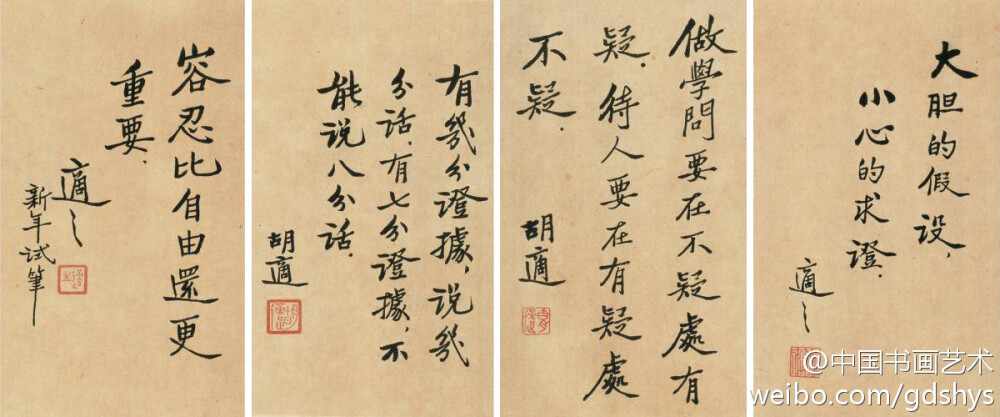 大胆的假设，
小心的求證．
適之
做學問要在不疑處有
疑．待人要在有疑處
不疑．
胡適
有幾分證據，说幾
分话．有七分證據，不
能说八分话．
胡適
容忍比自由還更
重要．
適之
新年试筆
@中国书画艺术
weibo.com/gdshys